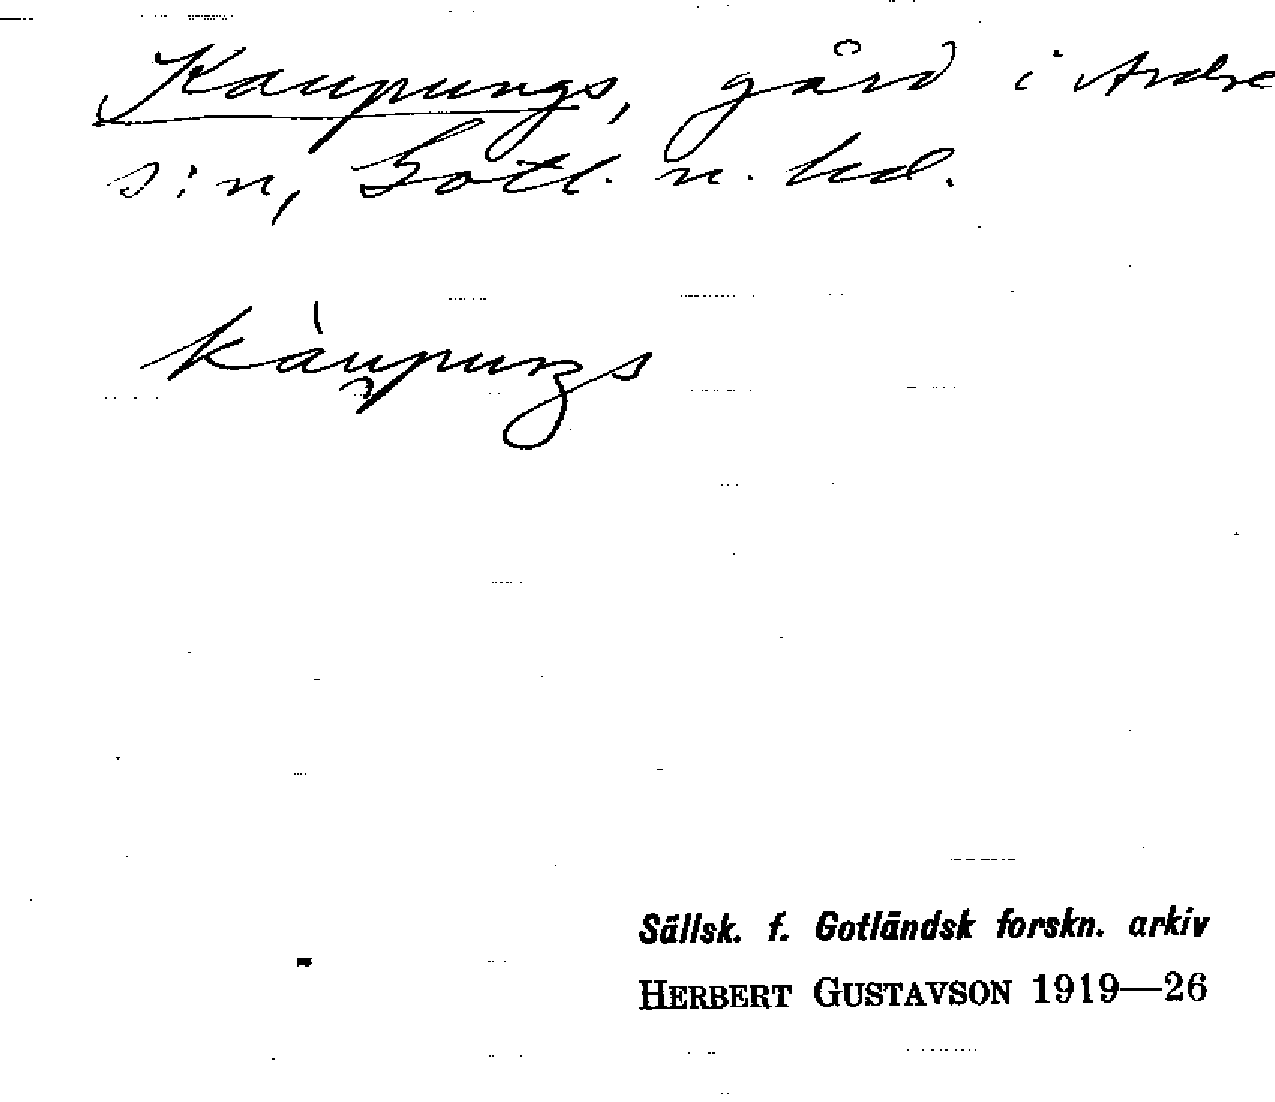 Kaupungs, gård i Ardre
s:n, Gotl. n. hd.
kàu̯puŋs
Sällsk. f. Gotländsk forskn. arkiv
HERBERT GUSTAVSON 1919—26